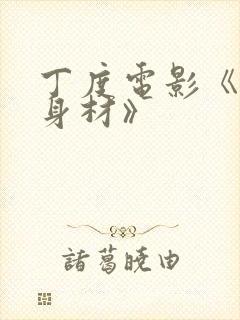 丁度電影《
身材》
諸葛曉由